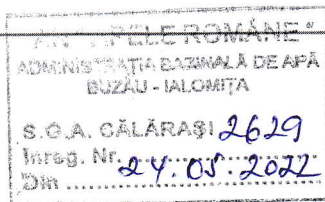 APELE ROMÂNE
ADMINISTRAȚIA BAZINALĂ DE APĂ
BUZĂU - IALOMIȚA
S.G.A. CĂLĂRAȘI 2629
Înreg. Nr.
Din 24.05.2022